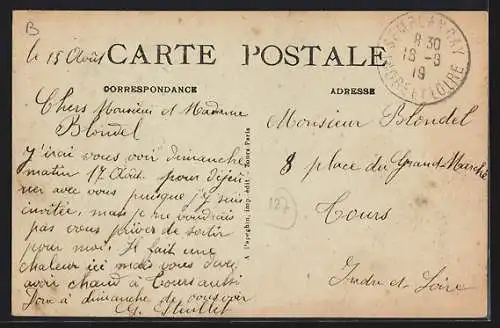 B
le 15 Août
CARTE POSTALE
CORRESPONDANCE
ADRESSE
8 30
16 - 8
19
INDRE ET LOIRE
Chers Monsieur et Madame
Blondel
J'irai vous voir dimanche
matin 17 Août pour déjeu
ner avec vous puisque j'y suis
invitée, mais je ne voudrais
pas vous priver de sortir
pour moi. Il fait une
chaleur ici mais vous devez
avoir chaud à Tours aussi
Donc à dimanche de vous voir
G.
A. Papeghin, imp.-édit. - Tours-Paris
Monsieur Blondel
8 place du Grand-Marché
Tours
Indre et Loire
127